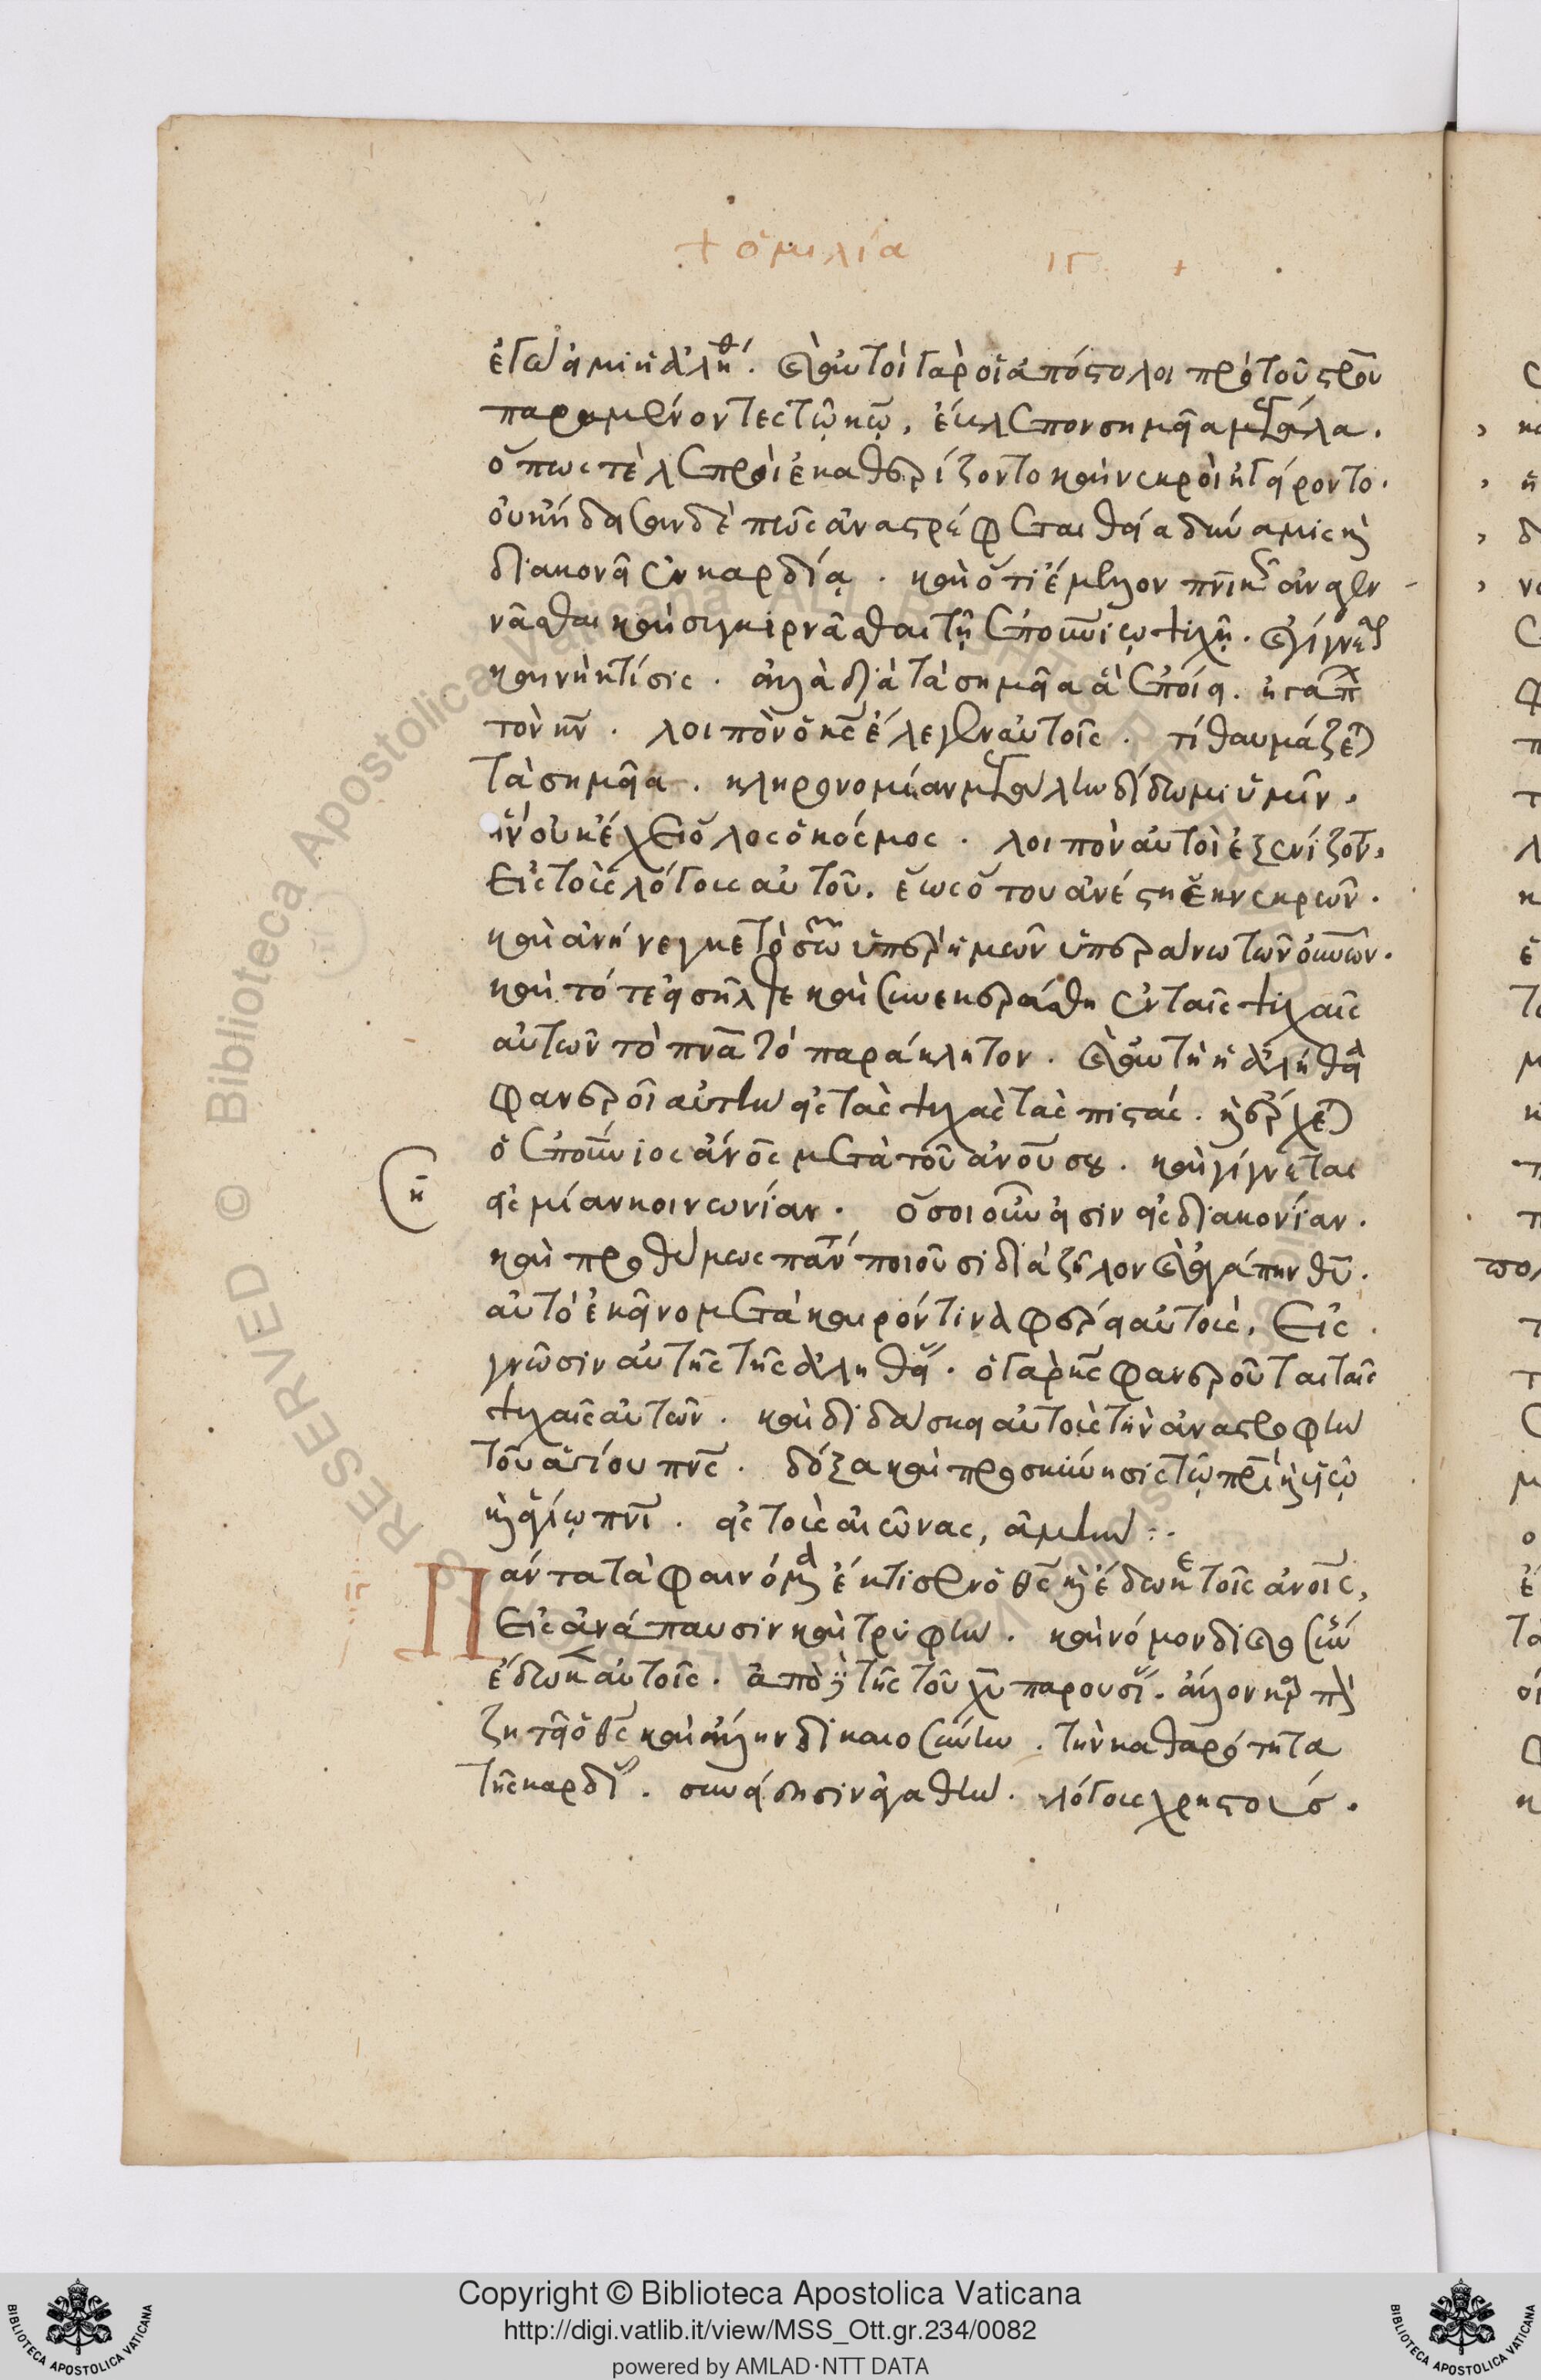 + ὁμιλία ιγ +
ἐγώ εἰμι ἡ ἀλήθ. καὶ αὐτοὶ γὰρ οἱ ἀπόστολοι πρὸ τοῦ στροῦ
παραμένοντες τῷ κῷ, ἔβλεπον σημεῖα μεγάλα.
ὅπως τε λεπροὶ ἐκαθερίζοντο καὶ νεκροὶ ἠγείροντο.
οὐκ ᾔδεισαν δὲ πῶς ἀναστρέφεται θεία δύναμις κ
διακονεῖ ἐν καρδίᾳ. καὶ ὅτι ἔμελλον πνικῶς ἀναγεν
νᾶσθαι καὶ συγκιρνᾶσθαι τῇ ἐπουνίῳ ψυχῇ. καὶ γίγνεσθ
καινὴ κτίσις. ἀλλὰ διὰ τὰ σημεῖα ἃ ἐποίει. ἠγάπ
τὸν κν. λοιπὸν ὁ κς ἔλεγεν αὐτοῖς. τί θαυμάζετε
τὰ σημεῖα. κληρονομίαν μεγάλην δίδωμι ὑμῖν,
ἣν οὐκ ἔχει ὅλος ὁ κόσμος. λοιπὸν αὐτοὶ ἐξενίζοντ,
εἰς τοὺς λόγους αὐτοῦ. ἕως ὅτου ἀνέστη ἐκ νεκρῶν.
καὶ ἀνήνεγκε τὸ σῶμ ὑπὲρ ἡμῶν ὑπεράνω τῶν οὐνῶν.
καὶ τότε εἰσῆλθε καὶ συνεκεράσθη ἐν ταῖς ψυχαῖς
αὐτῶν τὸ πνα τὸ παράκλητον. καὶ αὐτὴ ἡ ἀλήθει
φανεροῖ αὑτὴν εἰς τὰς ψυχὰς τὰς πιστάς. κ ἔρχετ
ὁ ἐπουνιος ἀνος μετὰ τοῦ ἀνου σου. καὶ γίγνεται
η
εἰς μίαν κοινωνίαν. ὅσοι οὖν εἰσιν εἰς διακονίαν.
καὶ προθύμως πάντ ποιοῦσι διὰ ζῆλον καὶ ἀγάπην θυ.
αὐτὸ ἐκεῖνο μετὰ καιρόν τινα φέρει αὐτοὺς, εἰς
γνῶσιν αὐτῆς τῆς ἀληθεί. ὁ γὰρ κς φανεροῦται ταῖς
ψυχαῖς αὐτῶν. καὶ διδάσκει αὐτοὺς τὴν ἀναστροφὴν
τοῦ ἁγίου πνς. δόξα καὶ προσκύνησις τῷ πρὶ κ υἱῷ
κ ἁγίῳ πνι. εἰς τοὺς αἰῶνας, ἀμήν :.
ιγ Πάντα τὰ φαινόμεν ἔκτισεν ὁ θς κ ἔδωκε τοῖς ἀνοις,
εἰς ἀνάπαυσιν καὶ τρυφήν. καὶ νόμον δικαιοσύν
ἔδωκεν αὐτοῖς. ἀπὸ δὲ τῆς τοῦ χυ παρουσί. ἄλλον καρπ
ζητεῖ ὁ θς καὶ ἄλλην δικαιοσύνην. τὴν καθαρότητα
τῆς καρδί. συνείδησιν ἀγαθήν. λόγους χρηστούς.
Copyright © Biblioteca Apostolica Vaticana
http://digi.vatlib.it/view/MSS_Ott.gr.234/0082
powered by AMLAD·NTT DATA